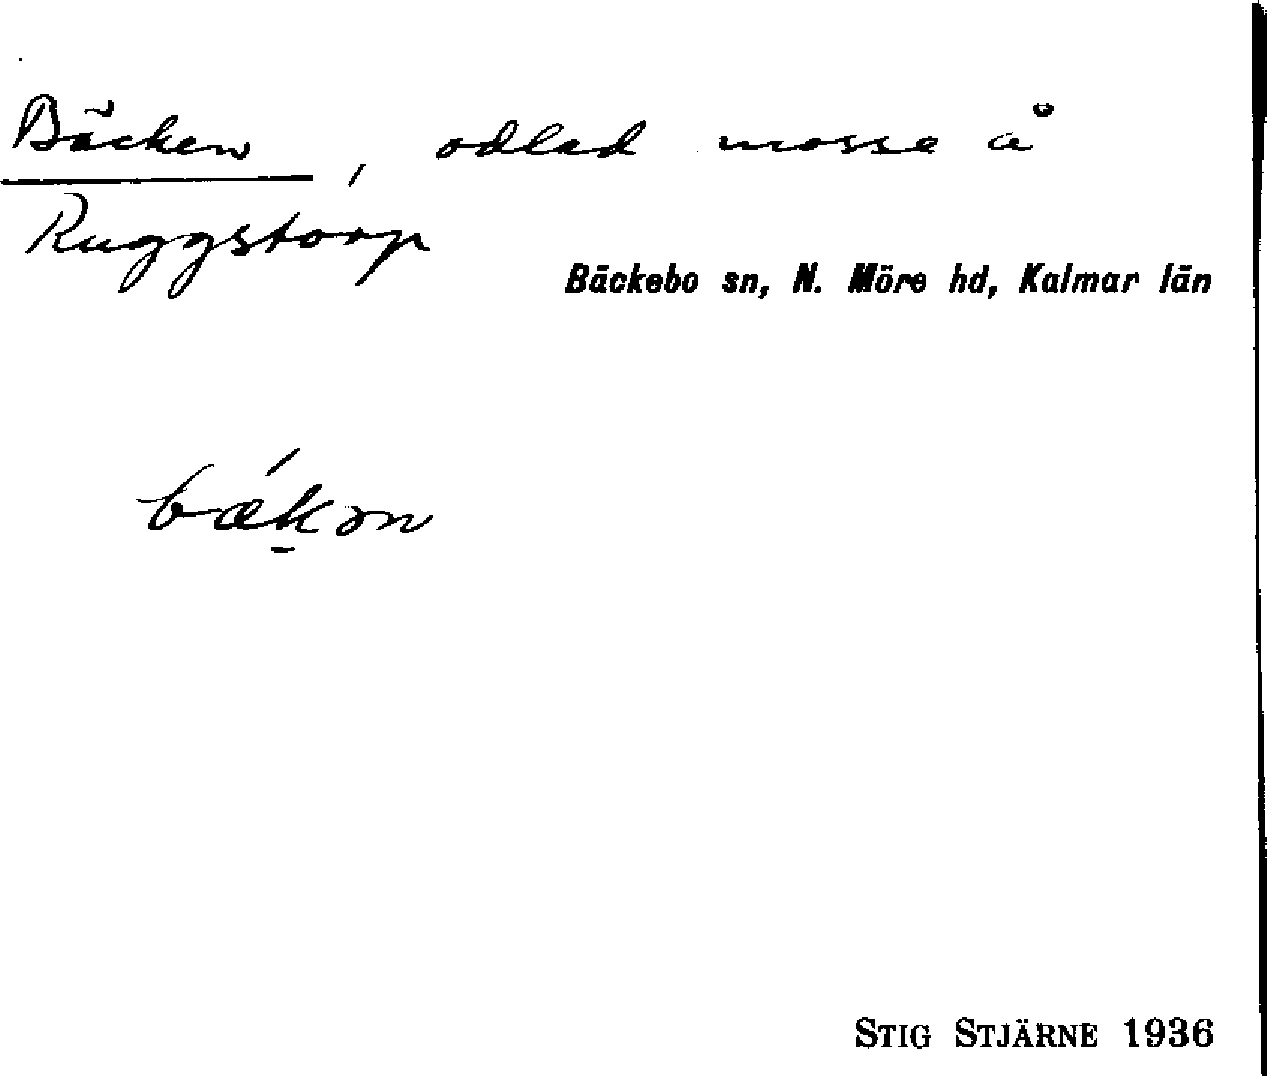 Bäcken, odlad mosse å
Ruggstorp
Bäckebo sn, N. Möre hd, Kalmar län
bækən
STIG STJÄRNE 1936